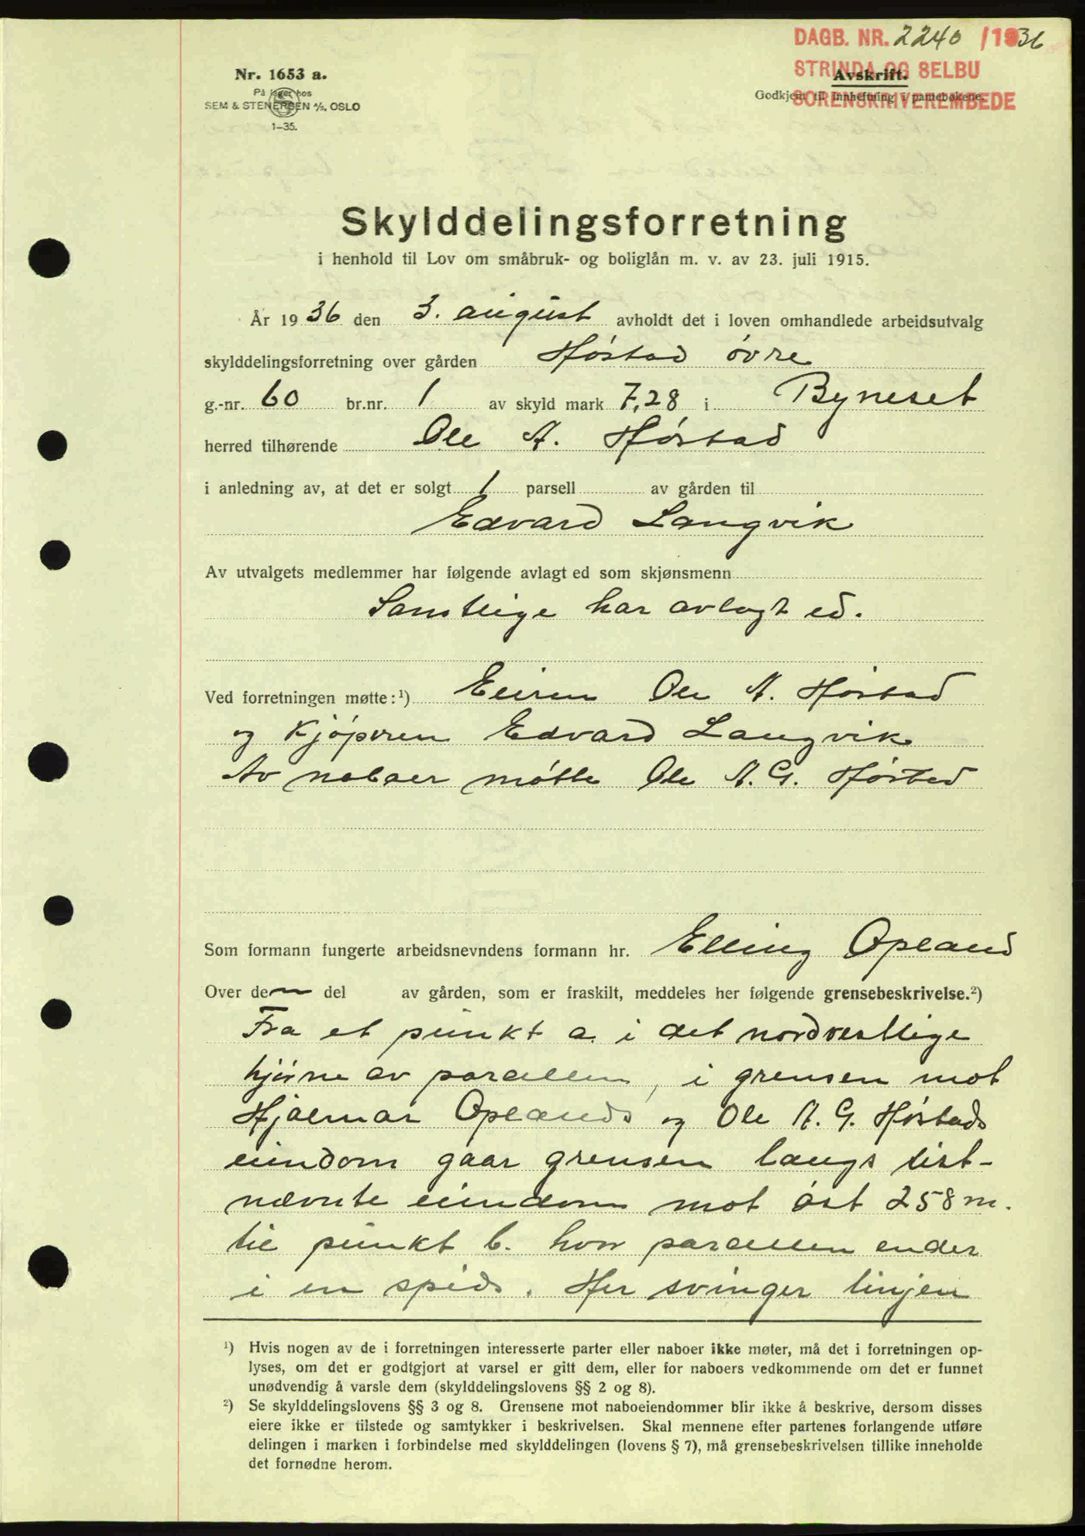 DAGB. NR. 2240 /1936
STRINDA OG SELBU
SORENSKRIVEREMBEDE
Nr. 1653 a.
På lager hos
SEM & STENERSEN A/S. OSLO
1-35.
Avskrift.
Godkjent til innheftning i pantebøkene.
Skylddelingsforretning
i henhold til Lov om småbruk- og boliglån m. v. av 23. juli 1915.
År 1936 den 3. august avholdt det i loven omhandlede arbeidsutvalg
skylddelingsforretning over gården Høstad øvre
g.-nr. 60 br.nr. 1 av skyld mark 7,28 i Byneset
herred tilhørende Ole A. Høstad
i anledning av, at det er solgt 1 parsell av gården til
Edvard Langvik
Av utvalgets medlemmer har følgende avlagt ed som skjønsmenn
Samtlige har avlagt ed.
Ved forretningen møtte:¹) Eieren Ole A. Høstad
og Kjøperen Edvard Langvik
Av naboer møtte Ole A. G. Høstad
Som formann fungerte arbeidsnevndens formann hr. Elling Opland
Over den del av gården, som er fraskilt, meddeles her følgende grensebeskrivelse.²)
Fra et punkt a. i det nordvestlige
hjørne av parcellen, i grensen mot
Hjalmar Oplands og Ole A. G. Høstads
eiendom gaar grensen langs sist-
nævnte eiendom mot øst 258 m.
til punkt b. hvor parcellen ender
i en spids. Her svinger linjen
¹) Hvis nogen av de i forretningen interesserte parter eller naboer ikke møter, må det i forretningen op-
lyses, om det er godtgjort at varsel er gitt dem, eller for naboers vedkommende om det er funnet
unødvendig å varsle dem (skylddelingslovens §§ 2 og 8).
²) Se skylddelingslovens §§ 3 og 8. Grensene mot naboeiendommer blir ikke å beskrive, dersom disses
eiere ikke er tilstede og samtykker i beskrivelsen. Skal mennene efter partenes forlangende utføre
delingen i marken i forbindelse med skylddelingen (lovens § 7), må grensebeskrivelsen tillike inneholde
det fornødne herom.